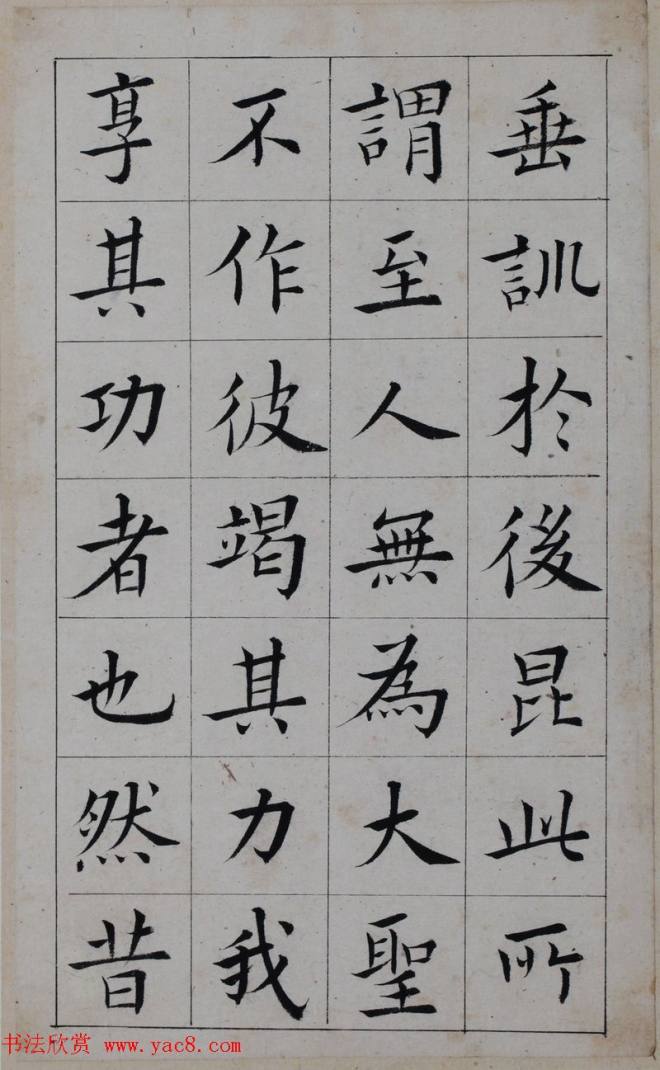 垂訓於後昆此所
謂至人無為大聖
不作彼竭其力我
享其功者也然昔
书法欣赏 www.yac8.com